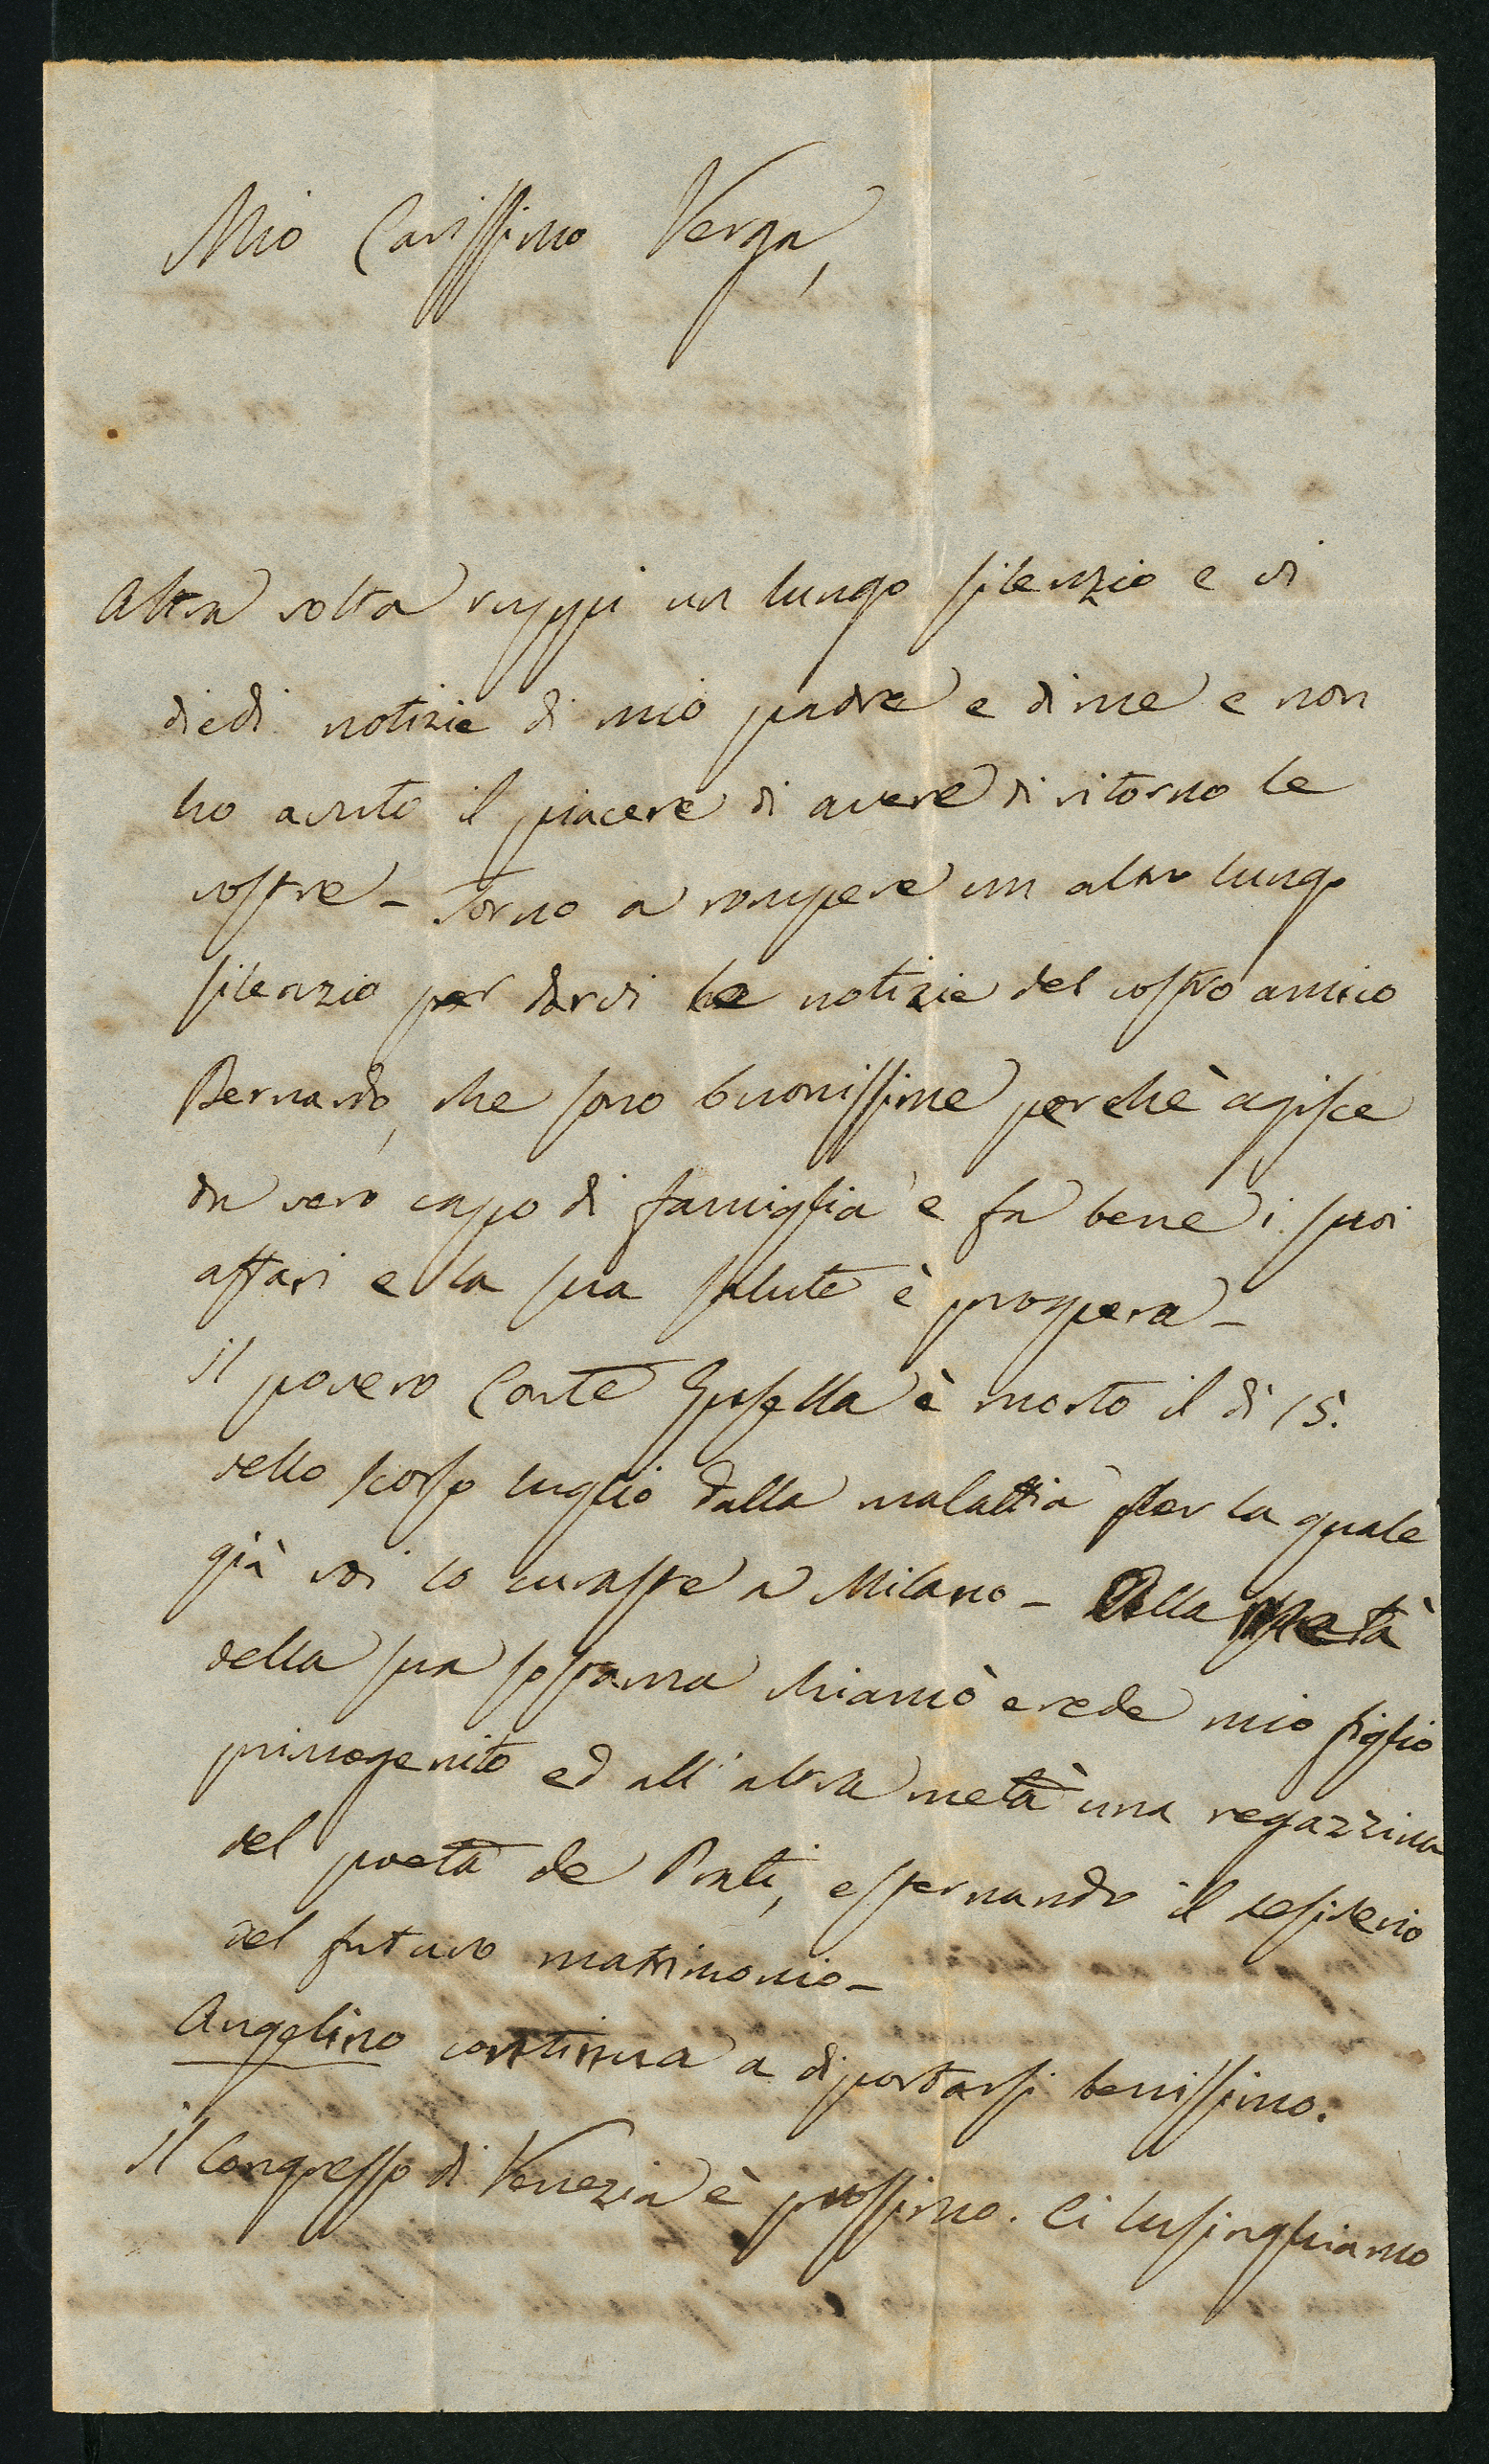 Mio Carissimo Verga,
Altra volta ruppi un lungo silenzio e vi
diedi notizie di mio padre e di me e non
ho avuto il piacere di avere di ritorno le
vostre – Torno a rompere un altro lungo
silenzio per darvi le notizie del vostro amico
Bernardo, che sono buonissime perchè agisce
da vero capo di famiglia e fa bene i suoi
affari e la sua salute è prospera –
Il povero Conte è morto il dì 15.
dello scorso luglio dalla malattia per la quale
già voi lo curaste a Milano – Alla metà
della sua sostanza chiamò erede mio figlio
primogenito ed all'altra metà una regazzina
del poeta de Prati, esternando il desiderio
del futuro matrimonio –
Angelino continua a diportarsi benissimo.
Il Congresso di Venezia è prossimo. Ci lusinghiamo